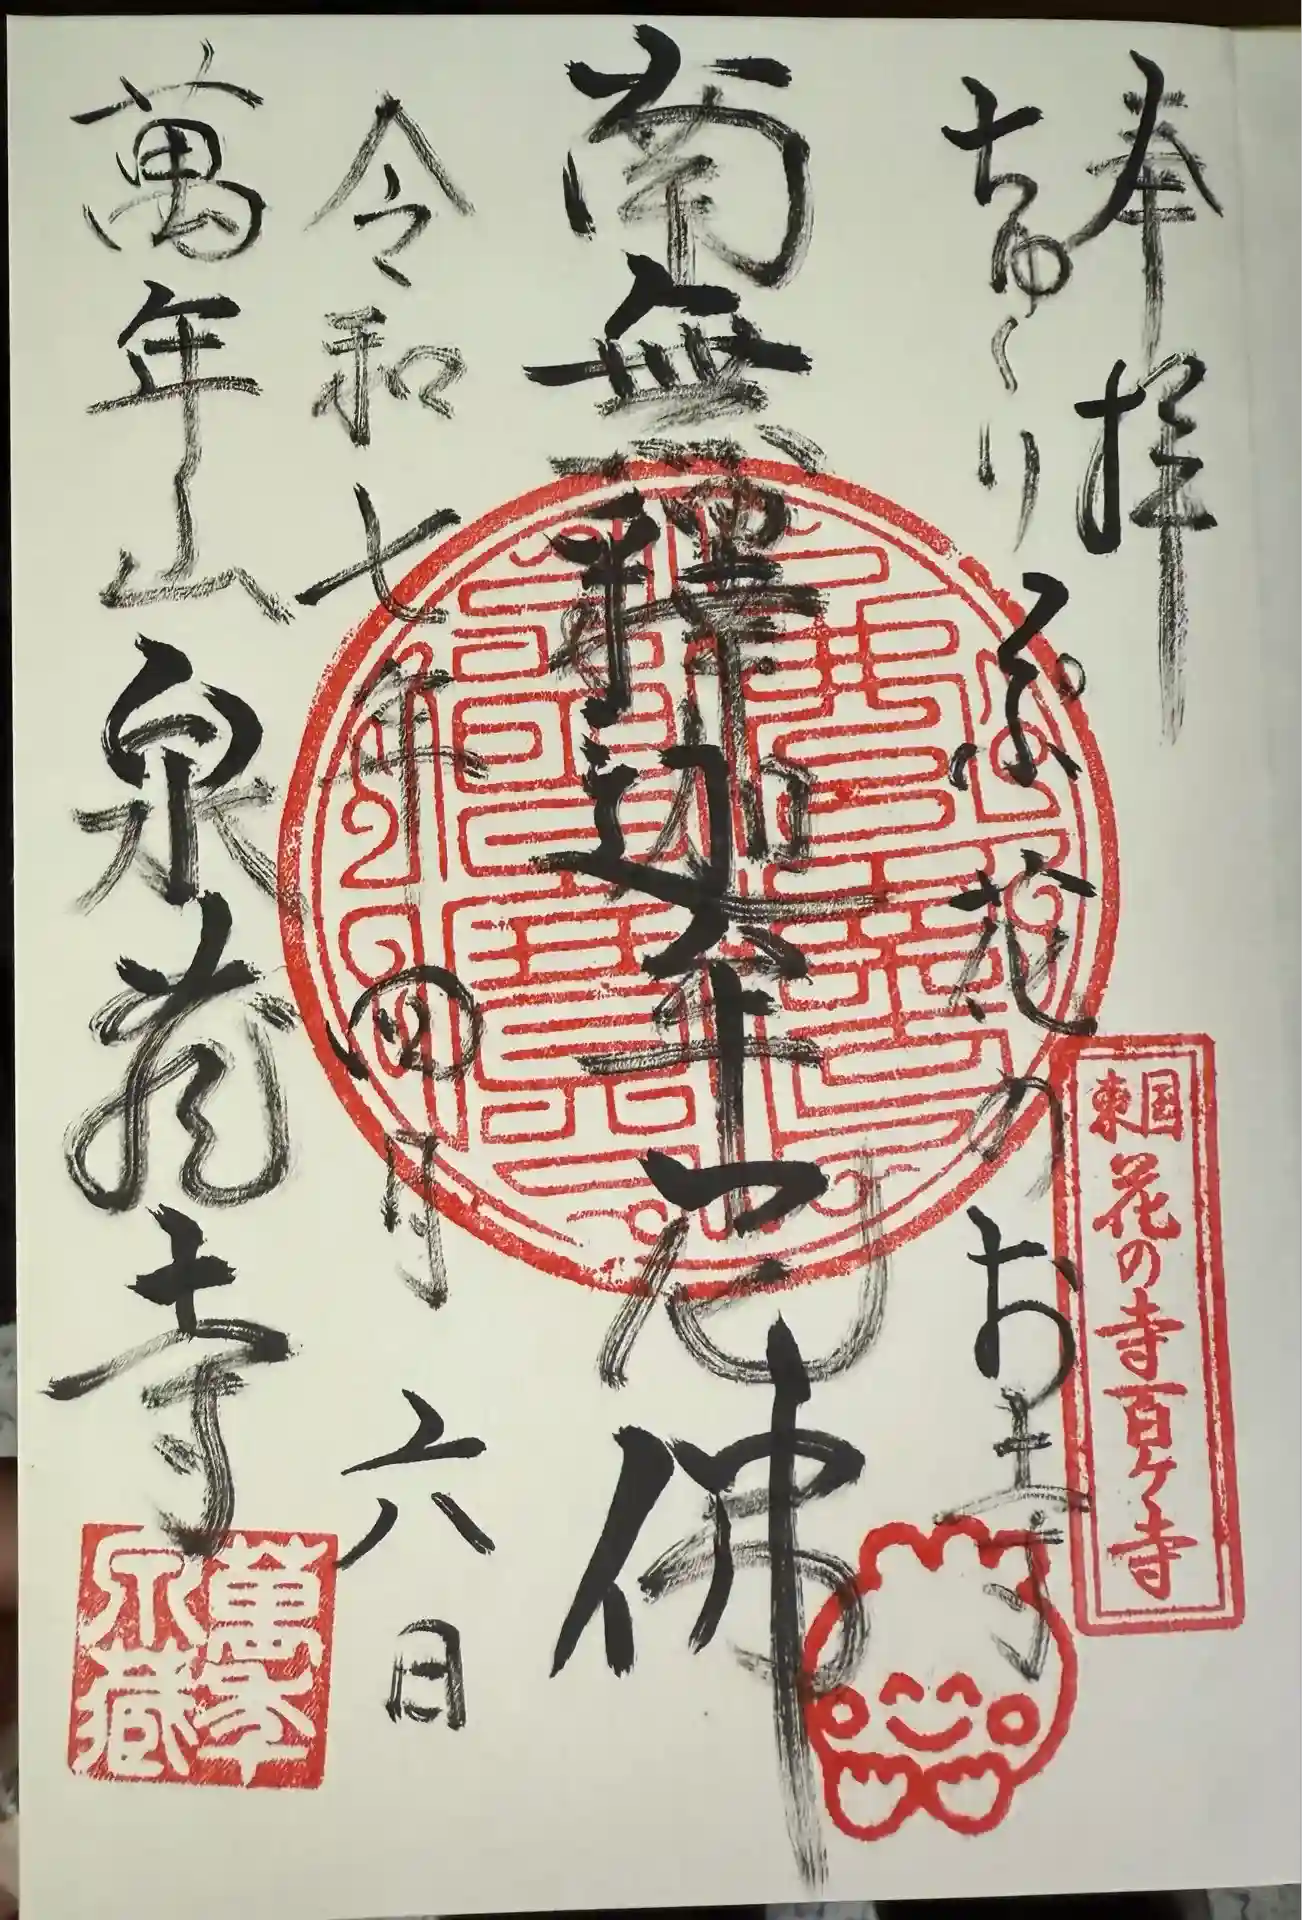 奉拝
ちゅーりっぷ花のお寺
東国花の寺百ヶ寺
南無釋迦牟尼佛
令和七年四月六日
萬年山泉蔵寺
萬年
泉藏